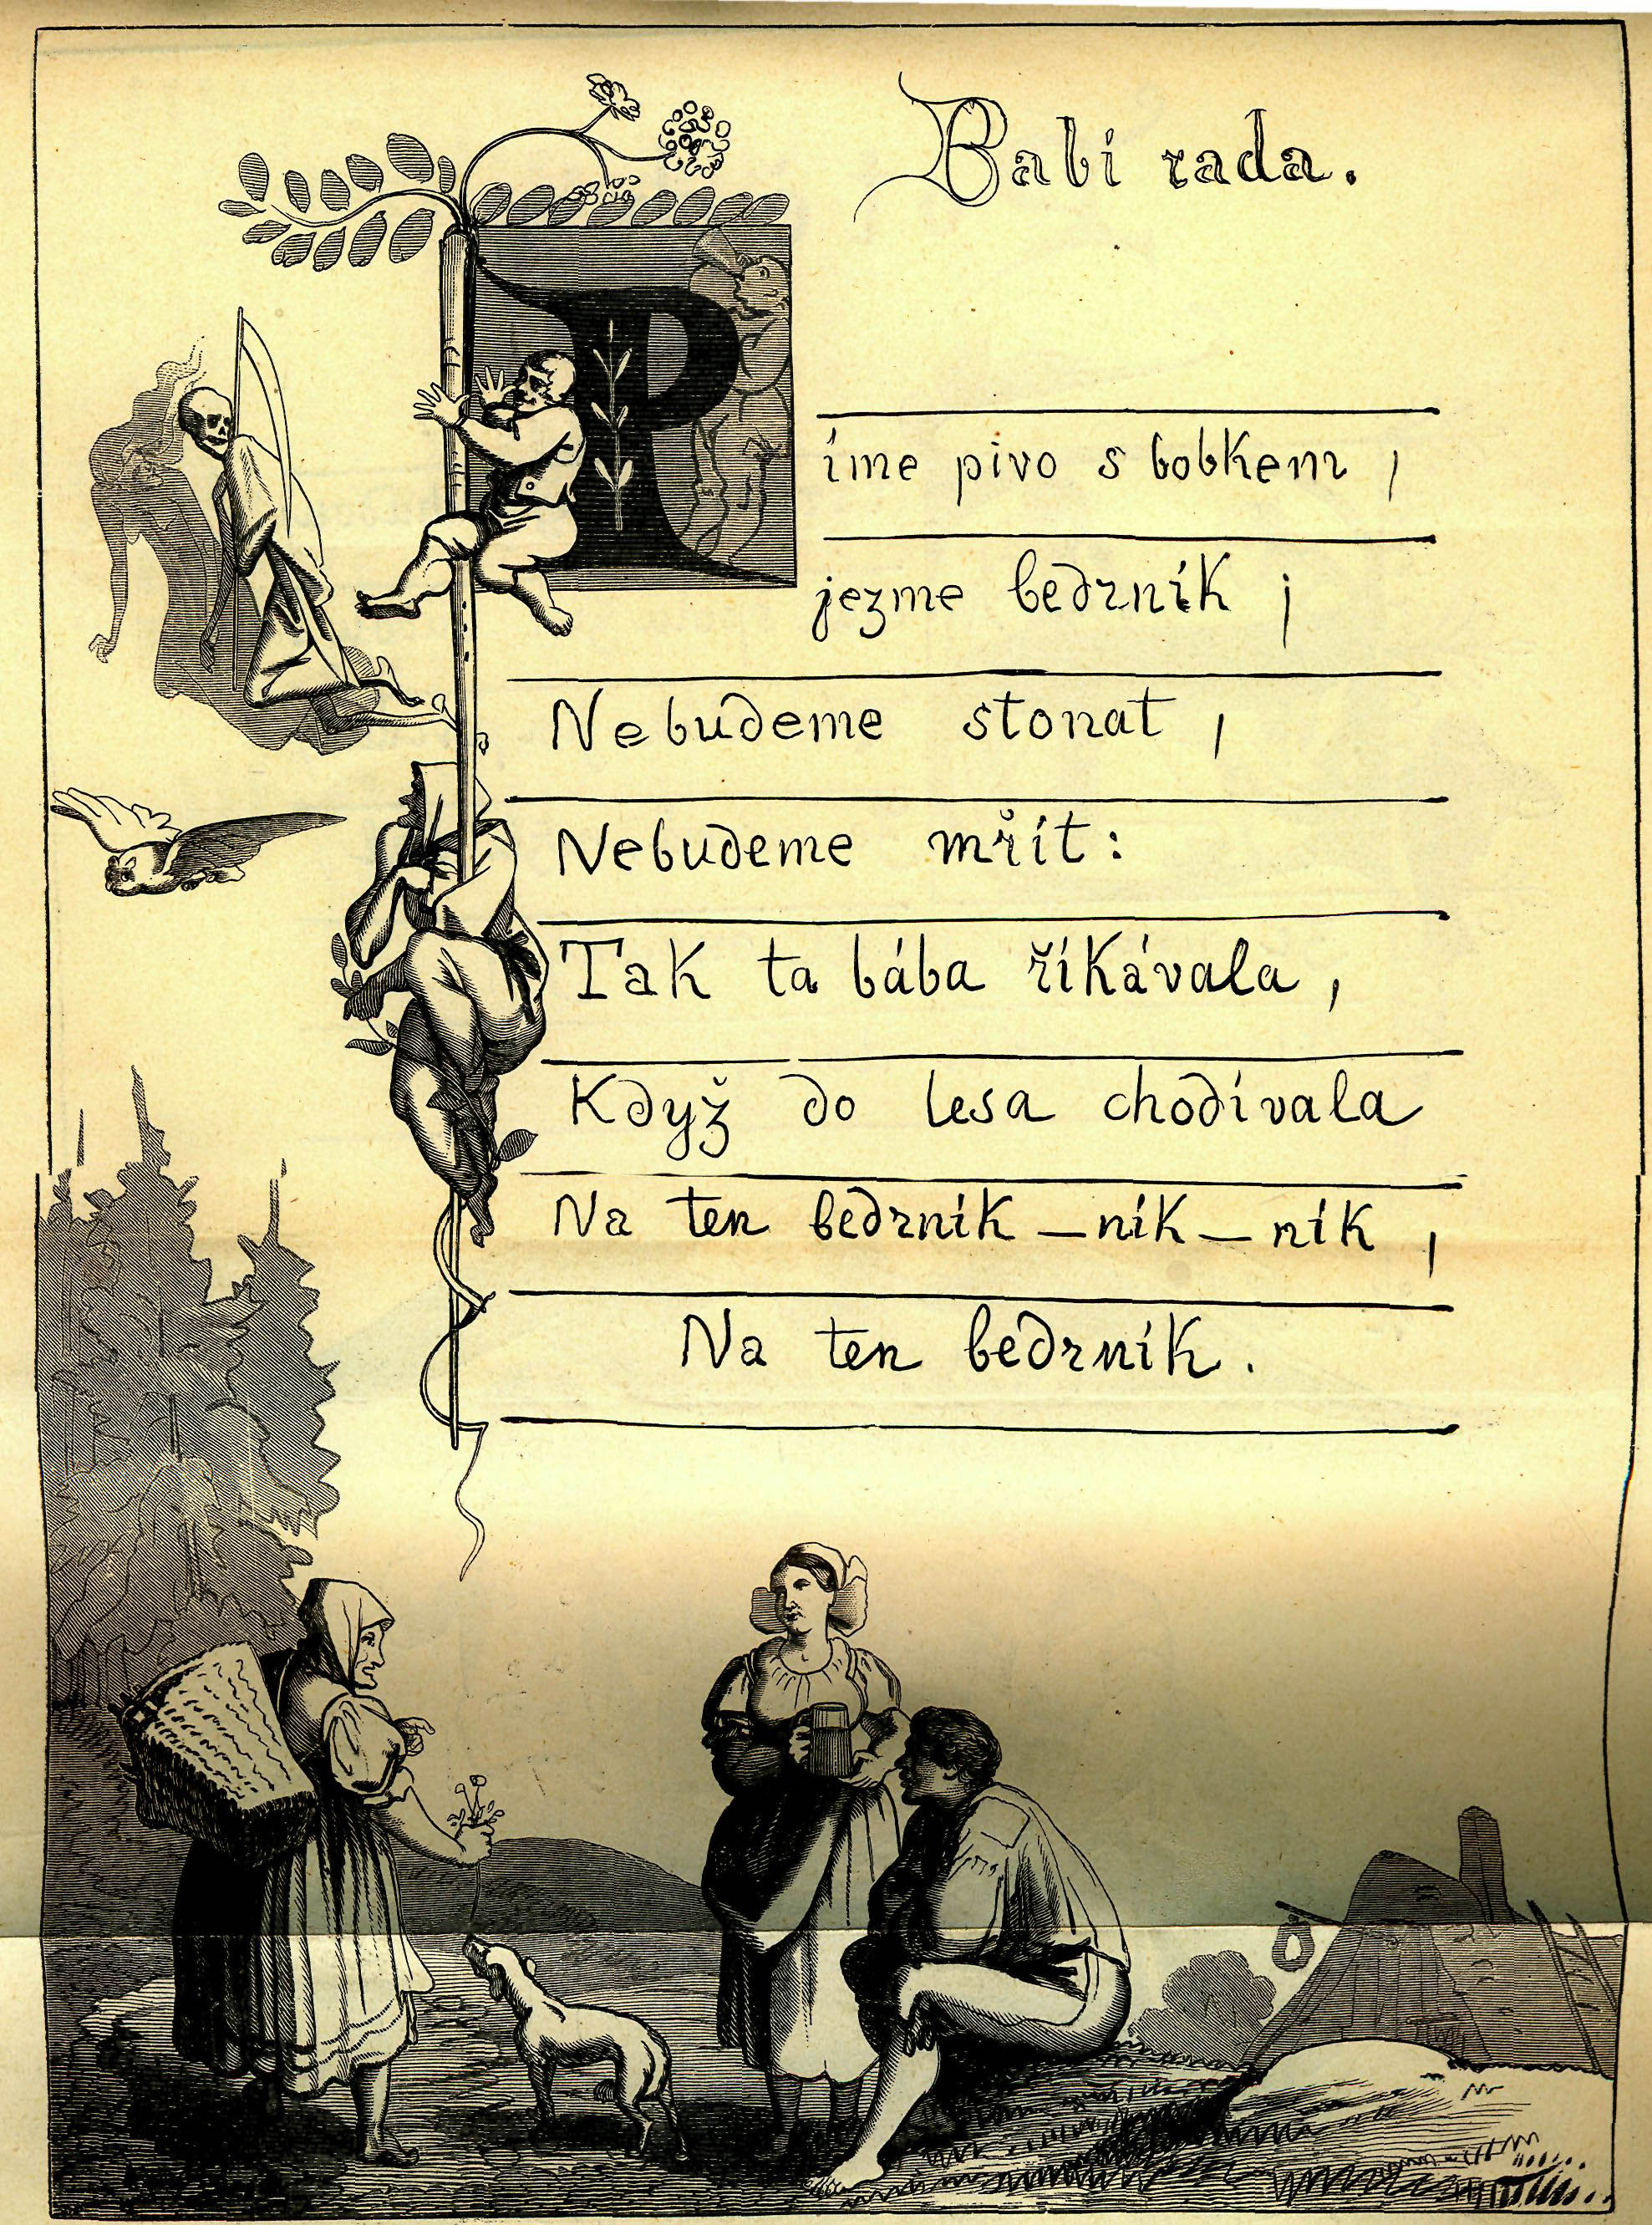 Babí rada.
Píme pivo s bobkem,
jezme bedrník;
Nebudeme stonat,
Nebudeme mřít:
Tak ta bába říkávala,
Když do lesa chodívala
Na ten bedrník–ník–ník,
Na ten bedrník.